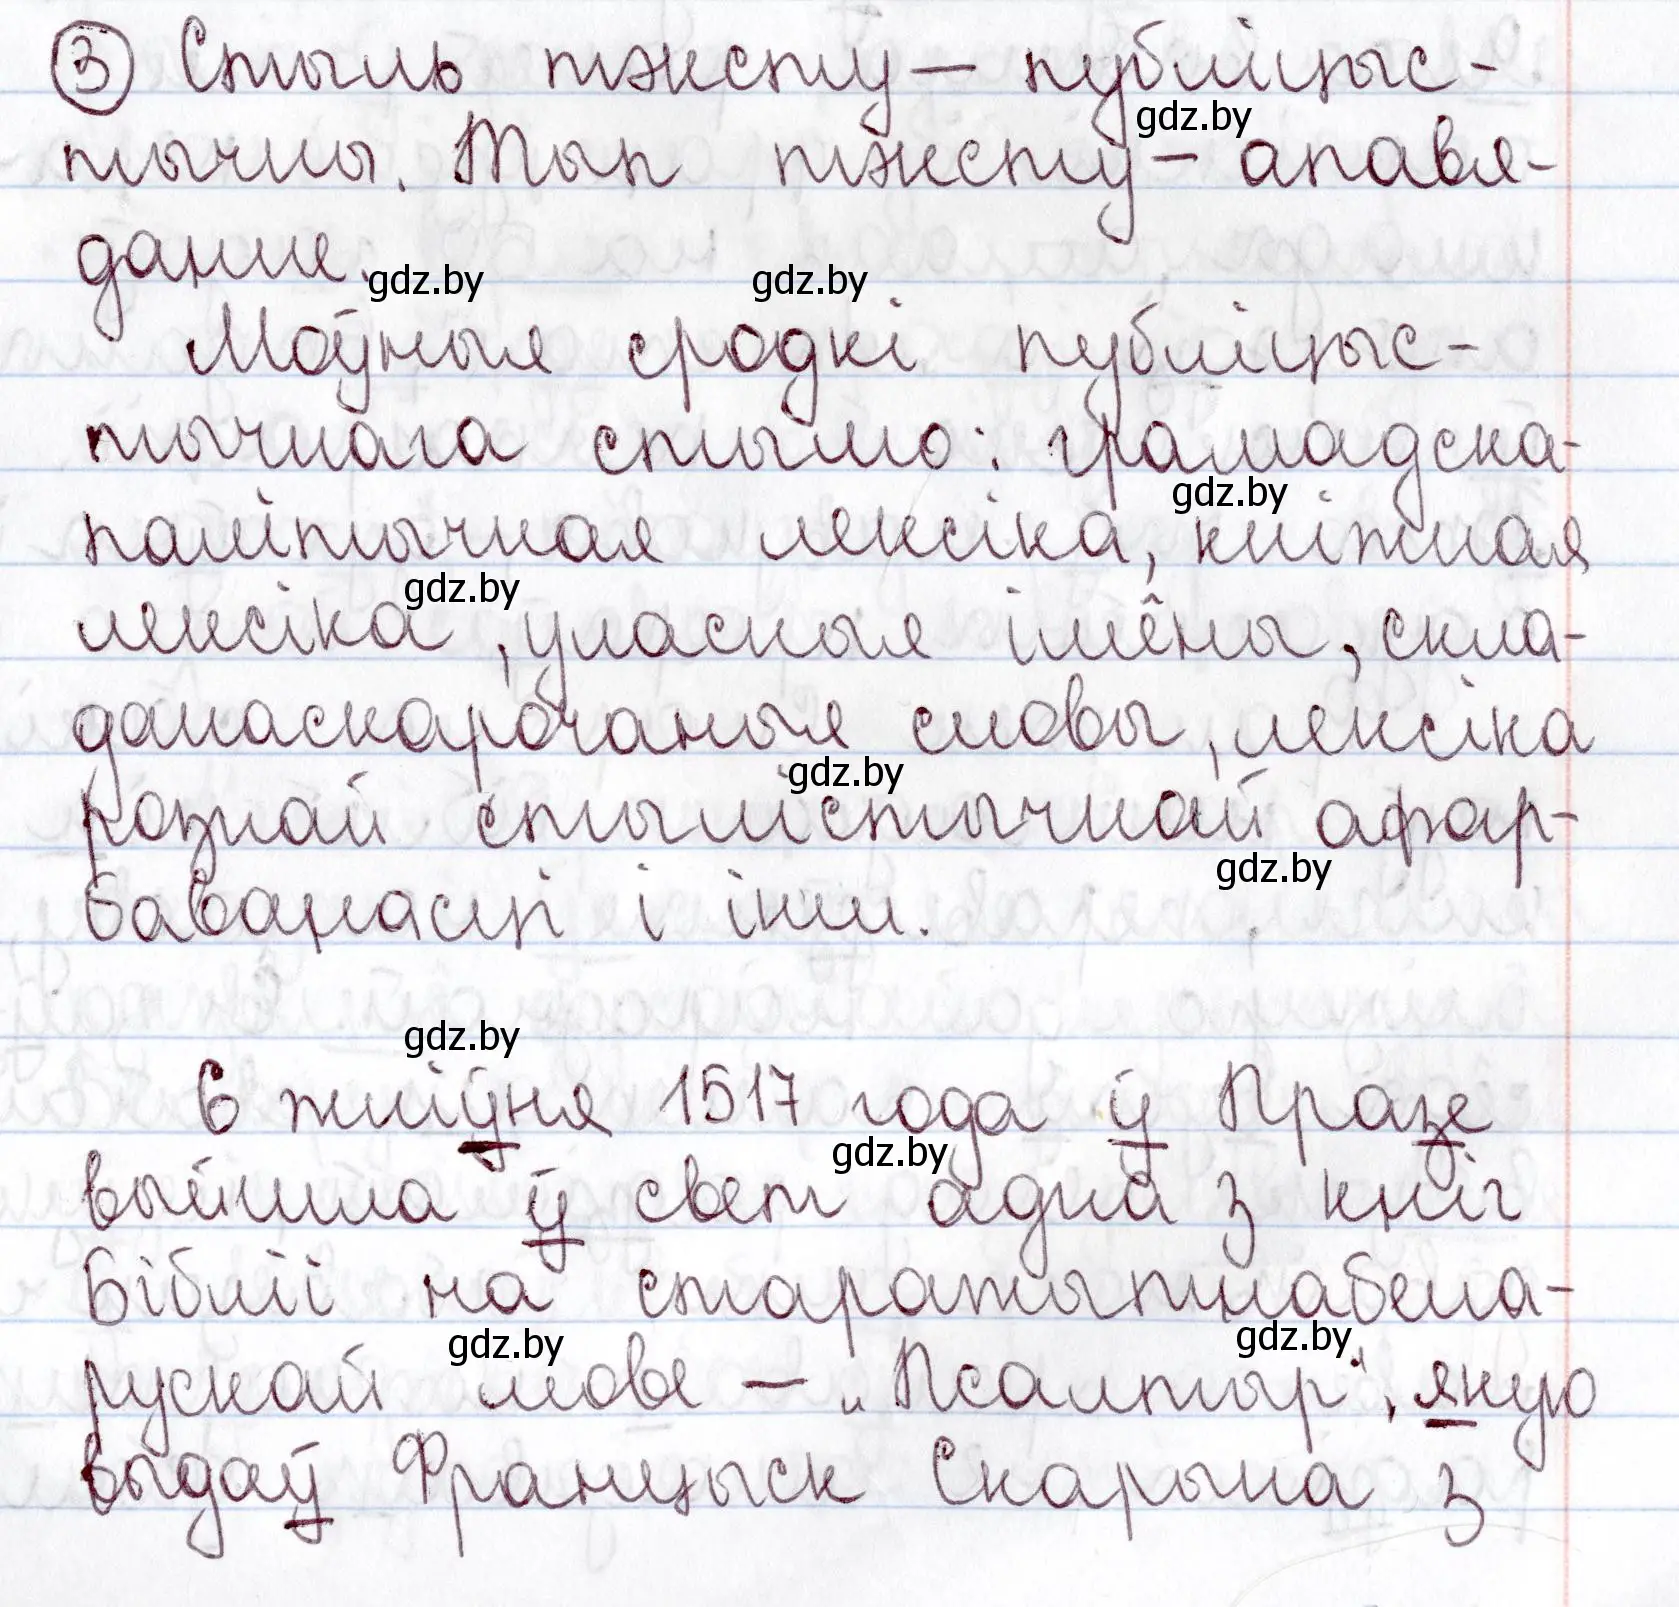 ③ Стыль тэксту — публіцыс-
gdz.by
тычны. Тып тэксту — апавя-
данне.
gdz.by gdz.by
Моўныя сродкі публіцыс-
тычнага стылю: грамадска-
gdz.by
палітычная лексіка, кніжная
gdz.by
лексіка, уласныя імёны, скла-
данаскарочаныя словы, лексіка
gdz.by
рознай стылістычнай афар-
gdz.by
баванасці і інш.
gdz.by
6 жніўня 1517 года ў Празе
gdz.by
выйшла ў свет адна з кніг
Бібліі на старатыпнабела-
gdz.by gdz.by
рускай мове — „Псалтыр“, якую
выдаў Францыск Скарына з